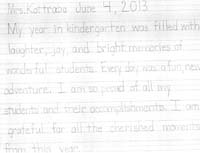 Mrs. Kottraba June 4, 2013
My year in kindergarten was filled with
laughter, joy, and bright memories of
wonderful students. Every day was a fun, new
adventure. I am so proud of all my
students and their accomplishments. I am
grateful for all the cherished moments
from this year.